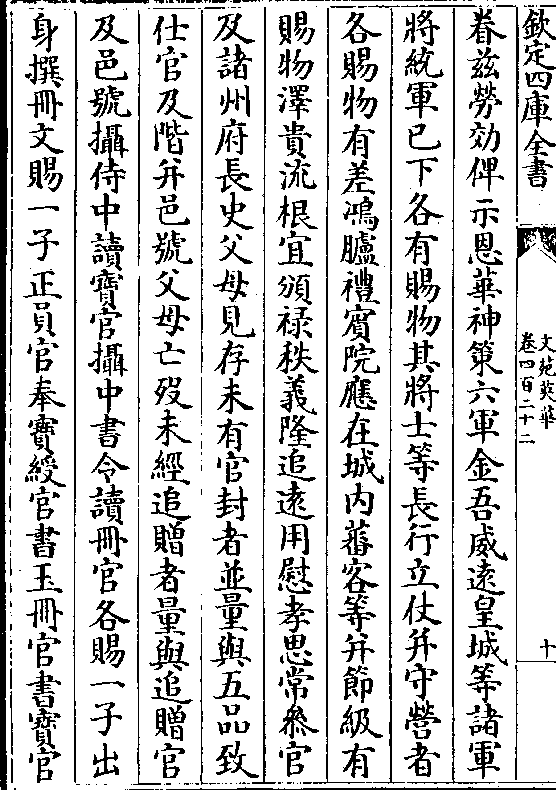 欽定四庫全書
文苑英華
卷四百二十二
十
眷兹勞効俾示恩華神策六軍金吾威逺皇城等諸軍
將統軍已下各有賜物其將士等長行立仗并守營者
各賜物有差鴻臚禮賔院應在城内蕃客等并節級有
賜物澤貴流根宜頒禄秩義隆追逺用慰孝思常叅官
及諸州府長史父母見存未有官封者並量與五品致
仕官及階并邑號父母亡歿未經追贈者量與追贈官
及邑號攝侍中讀寳官攝中書令讀冊官各賜一子出
身撰冊文賜一子正員官奉寳綬官書玉冊官書寳官